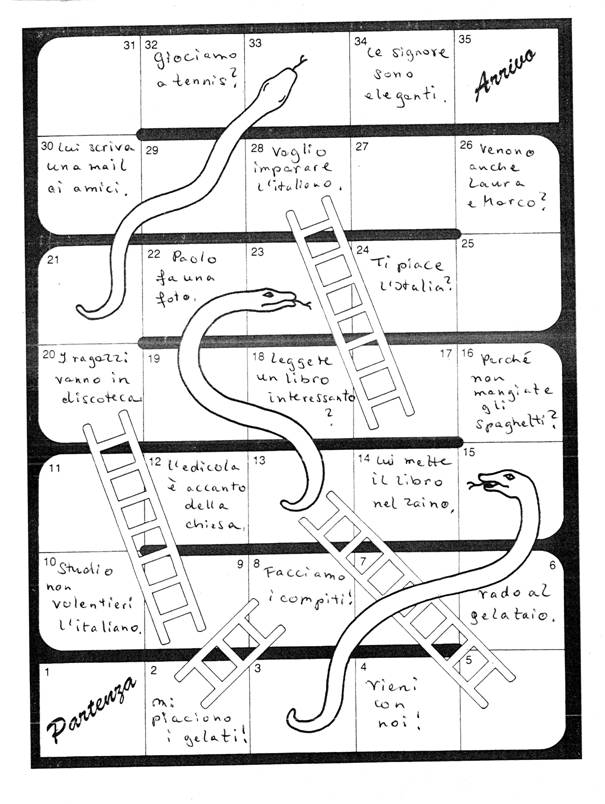 31
32
Giociamo
a tennis?
33
34
Le signore
sono
eleganti.
35
Arrivo
30 Lui scriva
una mail
ai amici.
29
28 Voglio
imparare
l'italiano.
27
26 Venono
anche
Laura
e Marco?
21
22 Paolo
fa una
foto.
23
24
Ti piace
l'Italia?
25
20 I ragazzi
vanno in
discoteca
19
18 Leggete
un libro
interessanto
?
17
16 Perché
non
mangiate
gli
spaghetti?
11
12 L'edicola
è accanto
della
chiesa.
13
14 Lui mette
il libro
nel zaino.
15
10 Studio
non
volentieri
l'italiano.
9
8
Facciamo
i compiti!
7
6
Vado al
gelataio.
1
Partenza
2
Mi
piaciono
i gelati!
3
4
Vieni
con
noi!
5